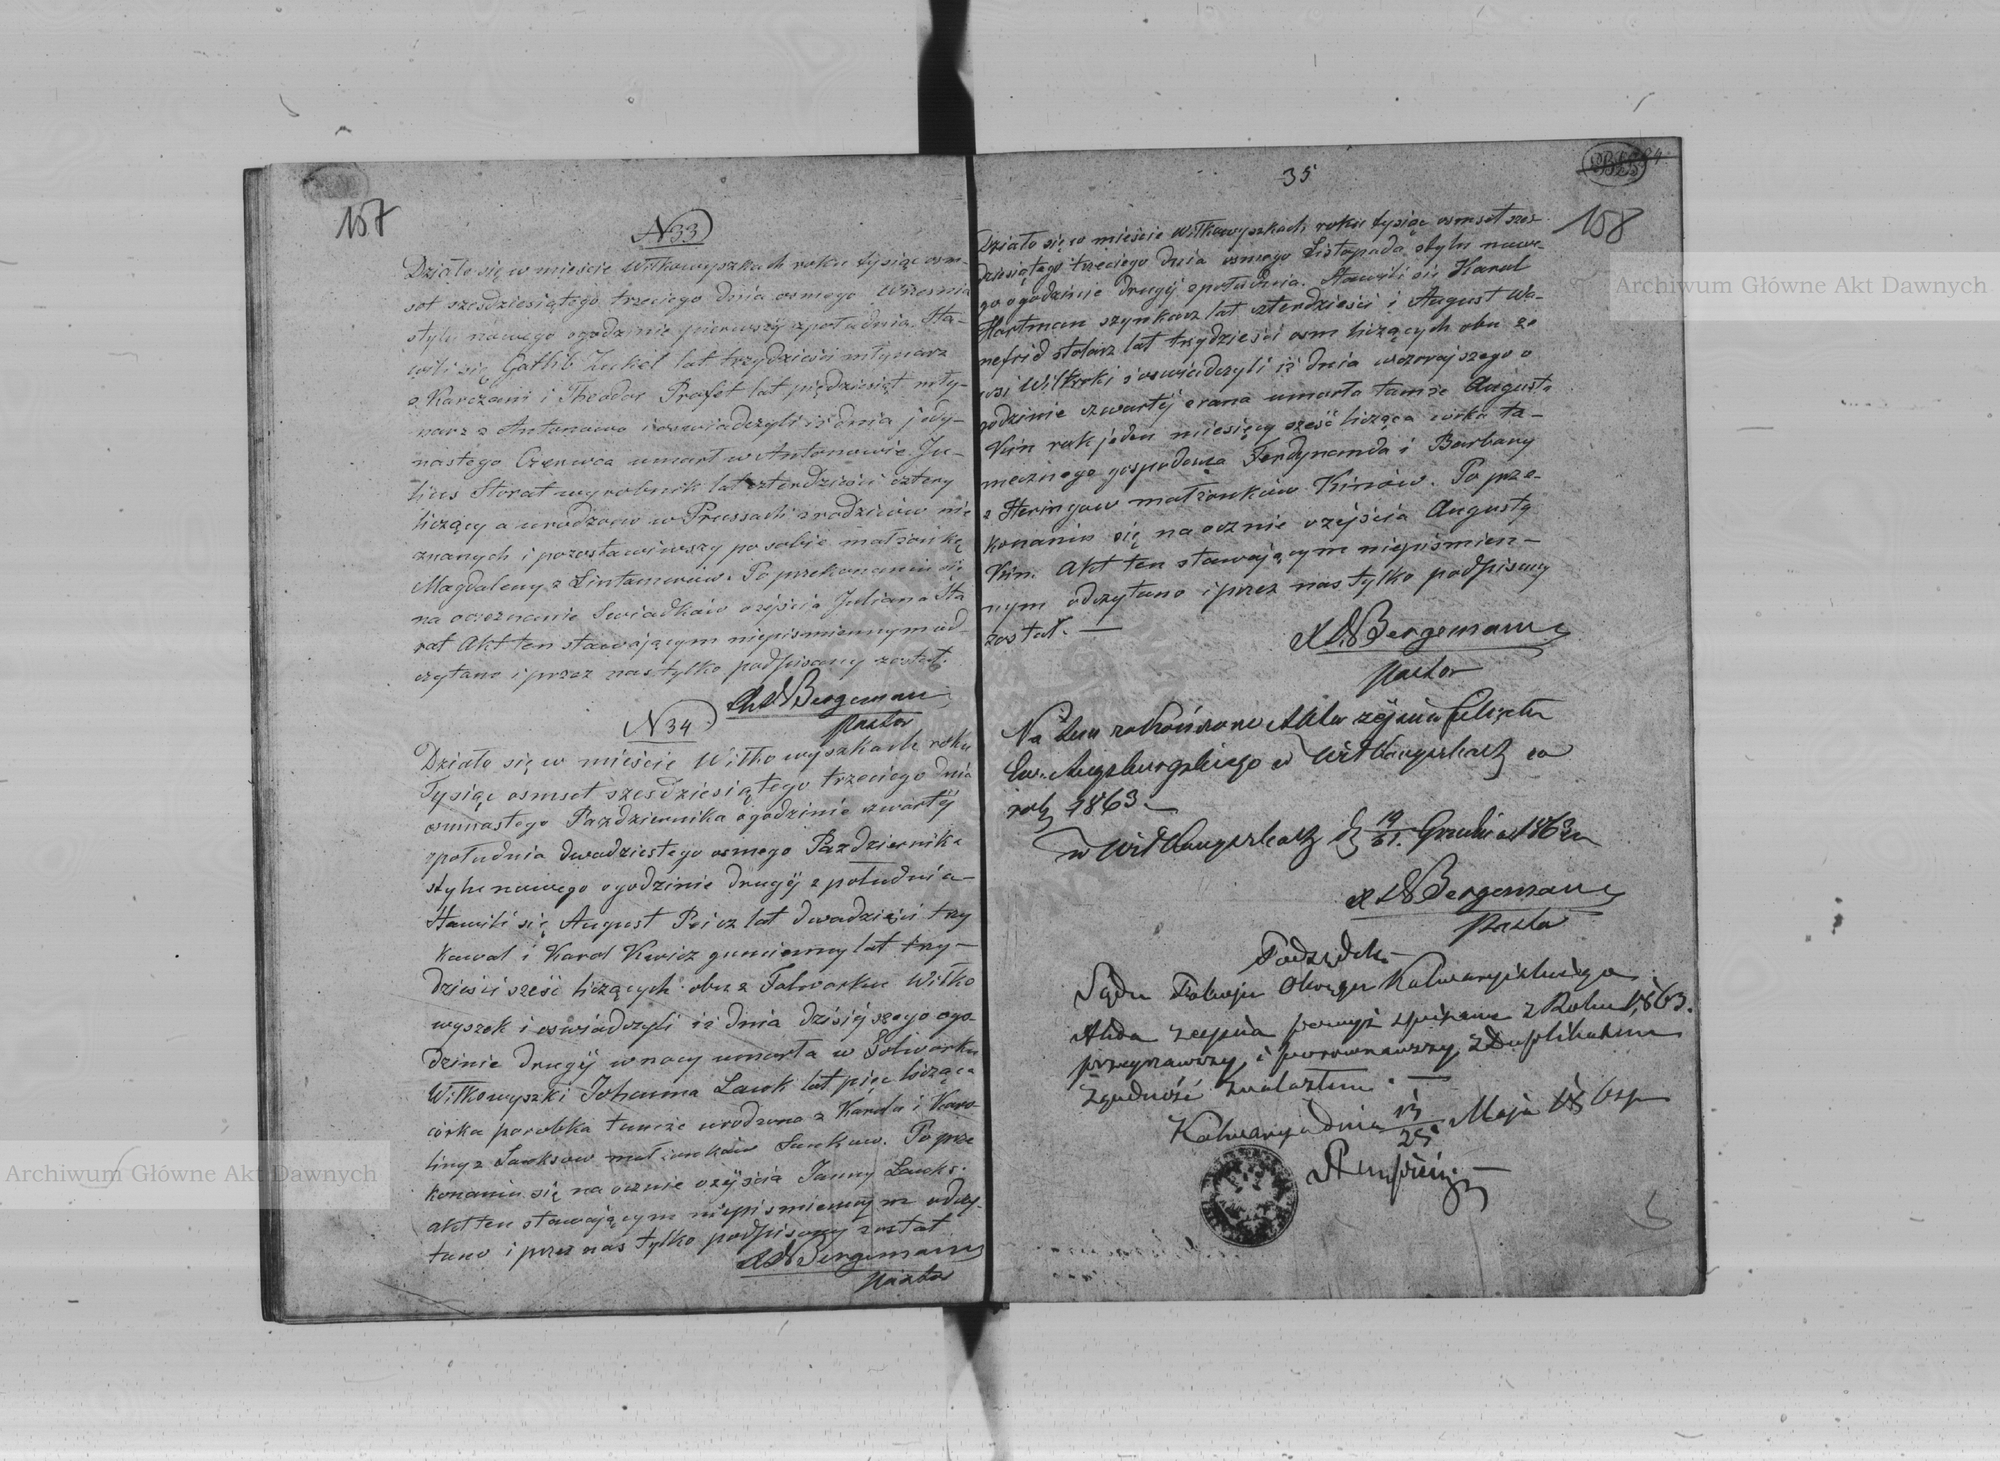 157
N 33
Działo się w mieście Wiłkowyszkach roku tysiąc osm-
set szesdziesiątego trzeciego dnia osmego Wrzesnia
stylu nowego ogodzinie pierwszy zpołudnia. Sta-
wili się Gotlib Zukel lat trzydzieści młynarz
z Karczani i Theodor Profet lat pięćdziesiąt mły-
narz z Antonowa i oswiadczyli iż dnia jedy-
nastego Czerwca umarł w Antonowie Ju-
lius Storat wyrobnik lat czterdzieści cztery
liczący a urodzony w Prussach z rodziców nie
znanych i pozostawiwszy po sobie małżonkę
Magdaleny z . Po przekonaniu się
na oczeznanie Swiadków zejścia Juliana Sto
rat Akt ten stawającym niepismiennym od-
czytano i przez nas tylko podpisany został.
Bergemann
Pastor
N 34
Działo się w mieście Wiłkowyszkach roku
Tysiąc osmset szesdziesiątego trzeciego dnia
osmnastego Pazdziernika ogodzinie czwartéj
zpołudnia dwadziestego osmego Pazdziernika
stylu nowego ogodzinie drugiéj z południa
Stawili się August Peicz lat dwadzieści trzy
kowal i Karol Kewicz gumienny lat trzy-
dzieści sześć liczących obu z Folwarku Wiłko
wyszek i oswiadczyli iż dnia dzisiéjszego ogo-
dzinie drugiéj w nocy umarła w Folwarku
Wiłkowyszki Johanna Lauk lat pięc licząca
córka parobka tamże urodzona z Karola i Karo
liny z małżonków . Po prze
konaniu się na ocznie zejścia Janny Lauks.
akt ten stawającym niepismiennym odczy-
tano i przez nas tylko podpisany został
Bergemann
Pastor
35
158
Działo się w mieście Wiłkowyszkach roku tysiąc osmset szes-
dziesiątego trzeciego dnia osmego Listopada stylu nowe-
go ogodzinie drugiéj zpołudnia. Stawili się Karol
Hartman szynkarz lat czterdzieści i August Wa-
nefrid stolarz lat trzydzieści osm liczących obu ze
wsi Wiłkszki i oswiadczyli iż dnia wczorajszego o
godzinie czwartéj zrana umarła tamże Augusta
Kün rok jeden miesięcy sześć licząca córka ta-
mecznego gospodarza Ferdynanda i Barbary
z Heringow małżonków Künów. Po prze-
konaniu się na ocznie zejścia Augusty
Kün. Akt ten stawającym niepismien-
nym odczytano i przez nas tylko podpisany
został. —
Bergemann
Pastor
Na tem zakończone Akta zejścia
Ew. Augsburgskiego w Wiłkowyszkach za
rok 1863. —
w Wiłkowyszkach d. 19/31. Grudnia 1863 r.
Bergemann
Pastor
Podsędek
Sądu Pokoju Okręgu Kalwaryjskiego
Akta zejścia powyż spisane z Roku 1863.
przeyrzawszy, i porównawszy z Duplikatem
zgodność znalazłem. —
Kalwarya dnia 13/25. Maja 186
Archiwum Główne Akt Dawnych
Archiwum Główne Akt Dawnych